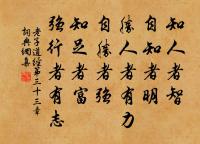 知人者智
自知者明
勝人者有力
自勝者強
知足者富
強行者有志
老子道經第三十三章
詞典網集